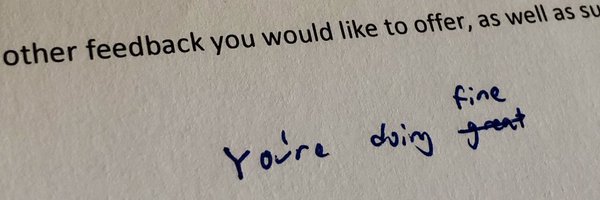 other feedback you would like to offer, as well as su
fine
You're doing great